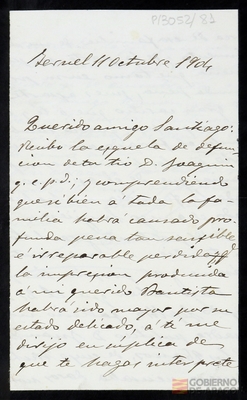 P/3052/83
Teruel 11 Octubre 1904
Querido amigo Santiago:
Recibo la esquela de defun-
cion de tu tio D. Joaquin
q.e.p.d.; y comprendiendo
que si bien á toda la fa-
milia habrá causado pro-
funda pena tan sensible
é irreparable perdida
la impresion producida
á mi querido Bautista
habrá sido mayor por su
estado delicado, á ti me
dirijo en súplica de
que te hagas interprete
GOBIERNO
DE ARAGON